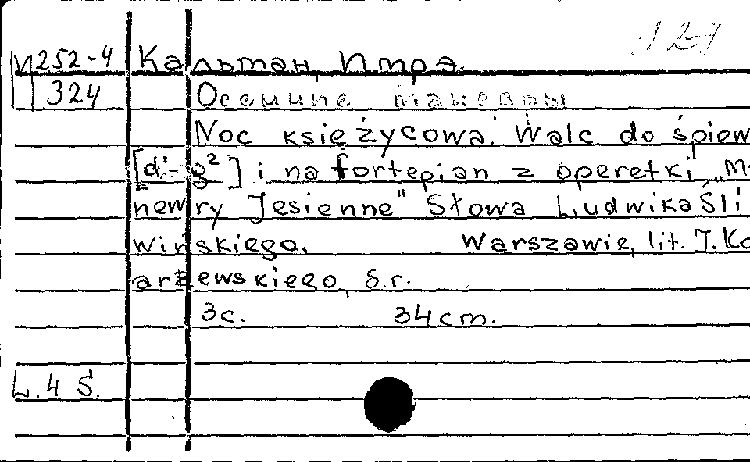 127
И252-4 Кальман, Имрэ.
324 Осенние маневры
Noc księżycowa. Walc do śpiew
[d¹-g²] i na fortepian z operetki „M-
newry Jesienne" Słowa Ludwika Śli
wińskiego. Warszawie, lit. J. Ko
arzewskiego, s.r.
3c. 34cm.
L.4 S.